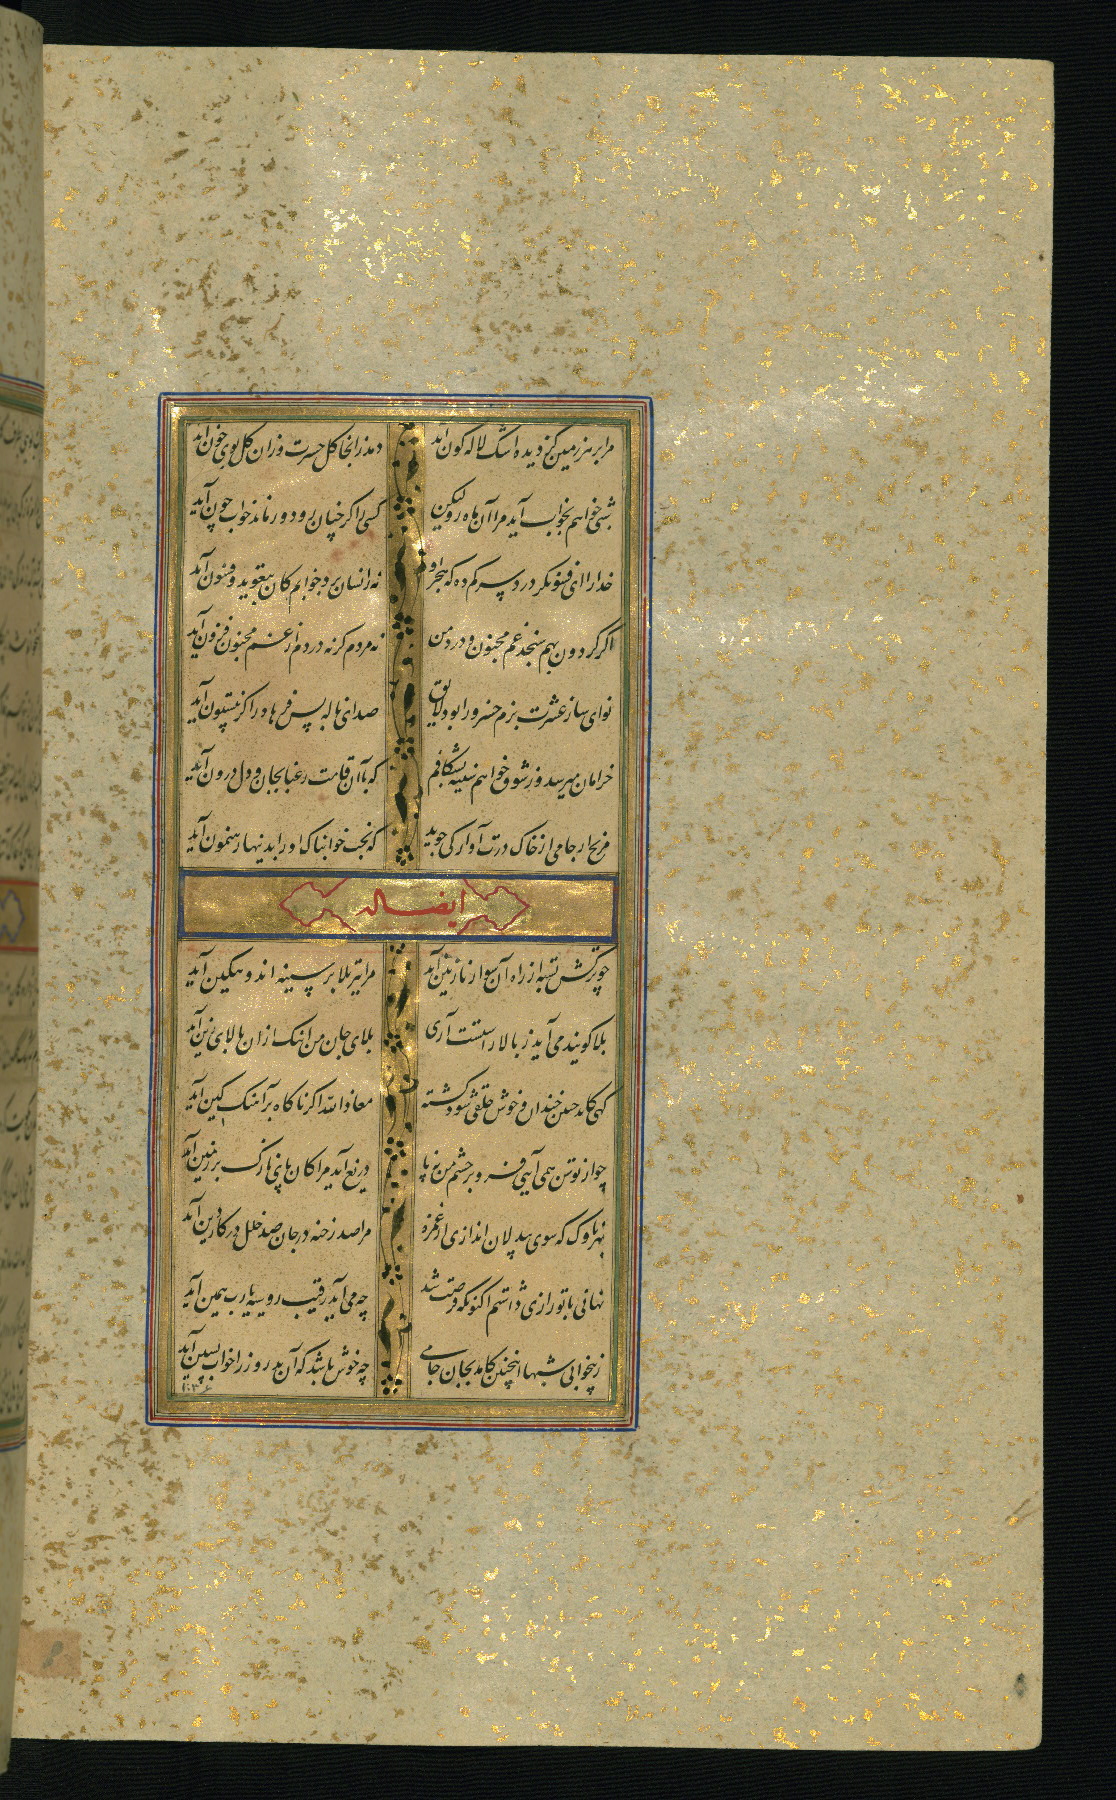 مرا بر هر زمین کز دیده اشک لاله کون آید
دمد زانجا کل حسرت وزان کل بوی خون آید
شبی خواهم بخواب آید مرا آن ماه رو لیکن
کسی را کر چنان رو دور ماند خواب چون آید
خدا را ای فسونکر درد سر کم ده که هجر او
نه زانسان برد خوابم کان بتعوید و فسون آید
اکر کردون بهم سنجد غم مجنون و درد من
نه مردم کر نه دردم از غم مجنون فزون آید
نوای ساز عشرت بزم خسرو را بود لایق
صدای ناله بس فرهاد را کز بیستون آید
خرامان میرسد وز شوق خواهم سینه بشکافم
که با آن قامت رعنا بجان و دل درون آید
مزیجار جامی از خاک درت آوارکی جوید
که بخت خوابناک او را بدینها رهنمون آید
ایضاله
چو ترکش بسته از راه آن سوار نازنین آید
مرا تیر بلا بر سینه اندوهکین آید
بلا کویند می آید ز بالا راستست آری
بلای جان من اینک ازان بالای زین آید
کهی کاید چنین خندان و خوش خلقی شود کشته
معاذ الله اکر ناکاه بر آهنک کین آید
چو از توسن همی آیی فرو بر چشم من نه پا
دریغ آید مرا کان پای نازک بر زمین آید
بهر ناوک که سوی بیدلان اندازی از غمزه
مرا صد رخنه در جان صد خلل در کار دین آید
نهانی با تو رازی داشتم اکنون که فرصت شد
چه می آید رقیب روسیه یارب همین آید
ز بیخوابی شبها اینچنین کامد بجان جامی
چه خوش باشد که آن مه رو ز را خواب پسین آید